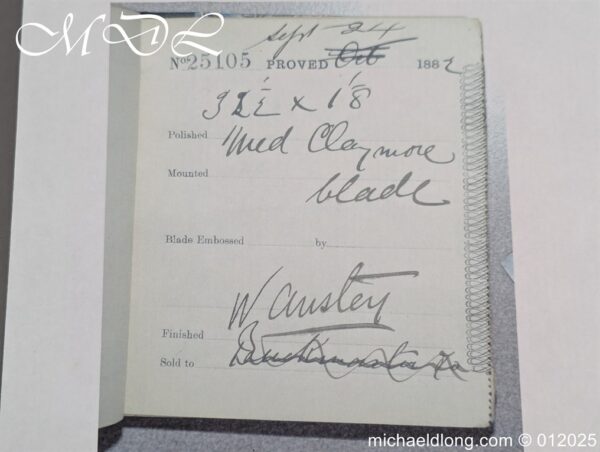 MDL
Sept 24
No 25105 PROVED Oct 1882
32½ x 1⅛
Polished Med Claymore
Mounted blade
Blade Embossed by
W Anstey
Finished
Sold to
michaeldlong.com © 012025